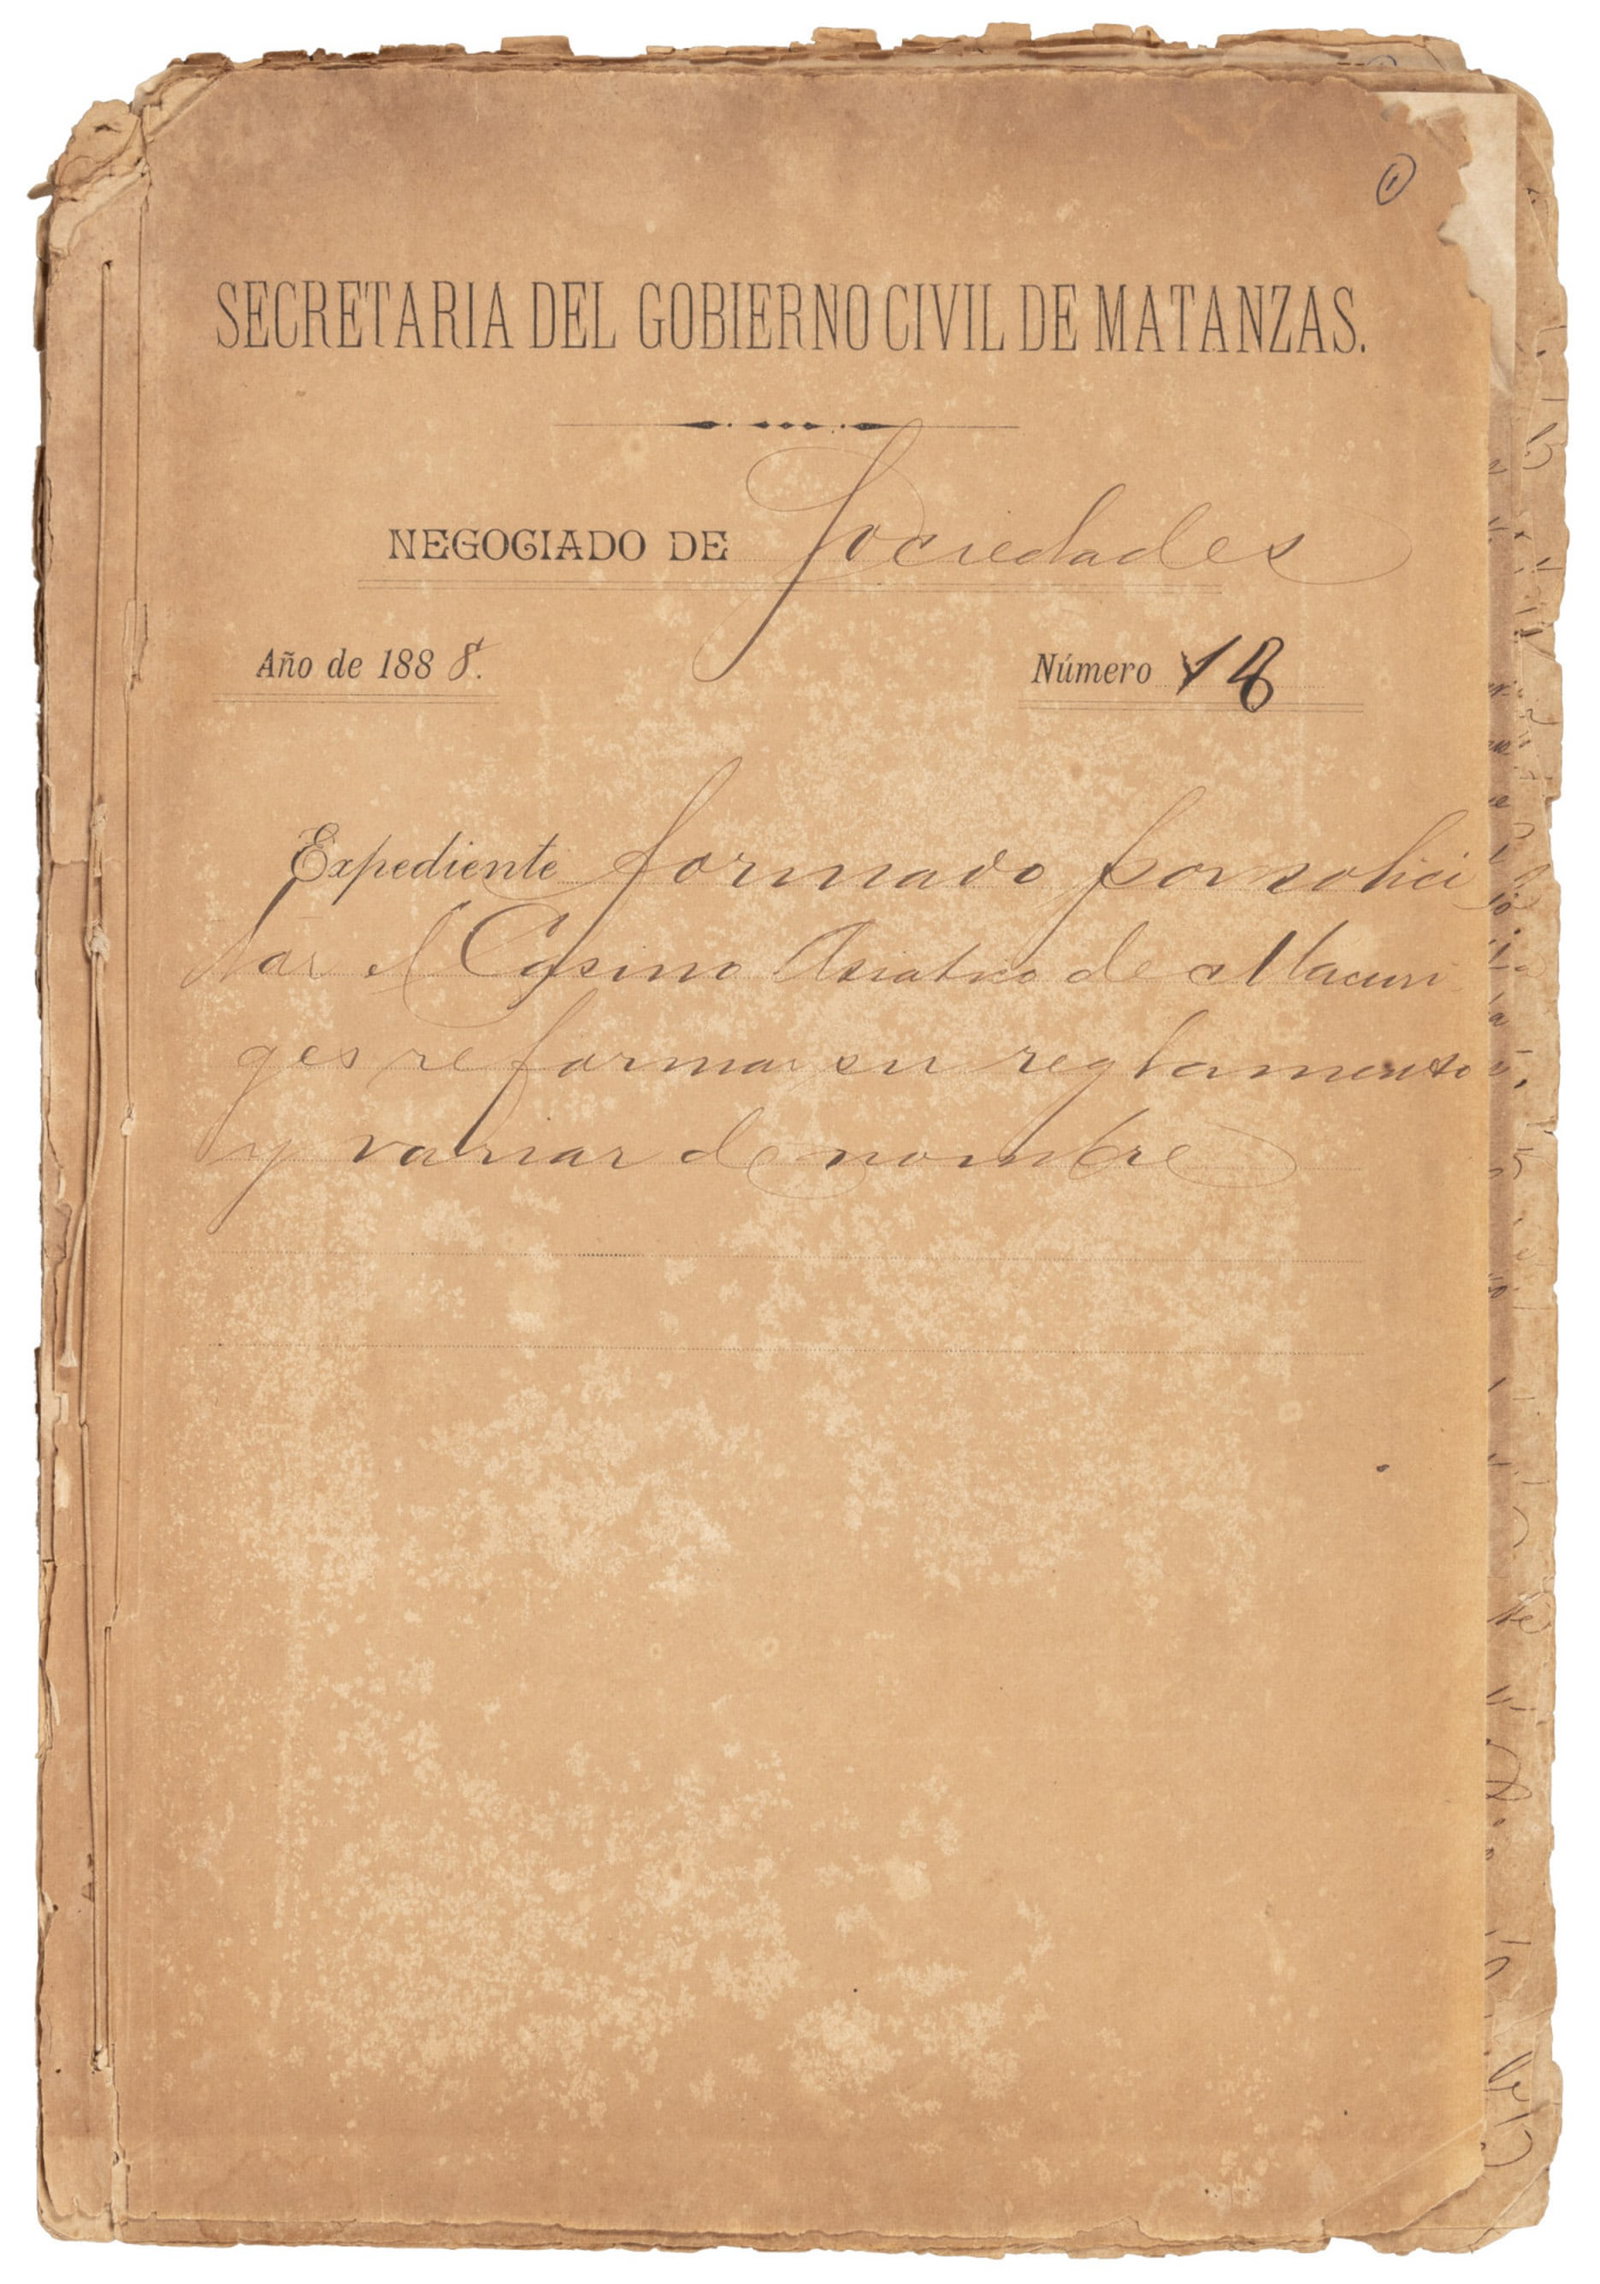 1
SECRETARIA DEL GOBIERNO CIVIL DE MATANZAS.
NEGOCIADO DE Sociedades
Año de 1888.
Número 18
Expediente formado por solici
tar el Casino Asiatico de Macuri
ges reformar su reglamento
y variar de nombre